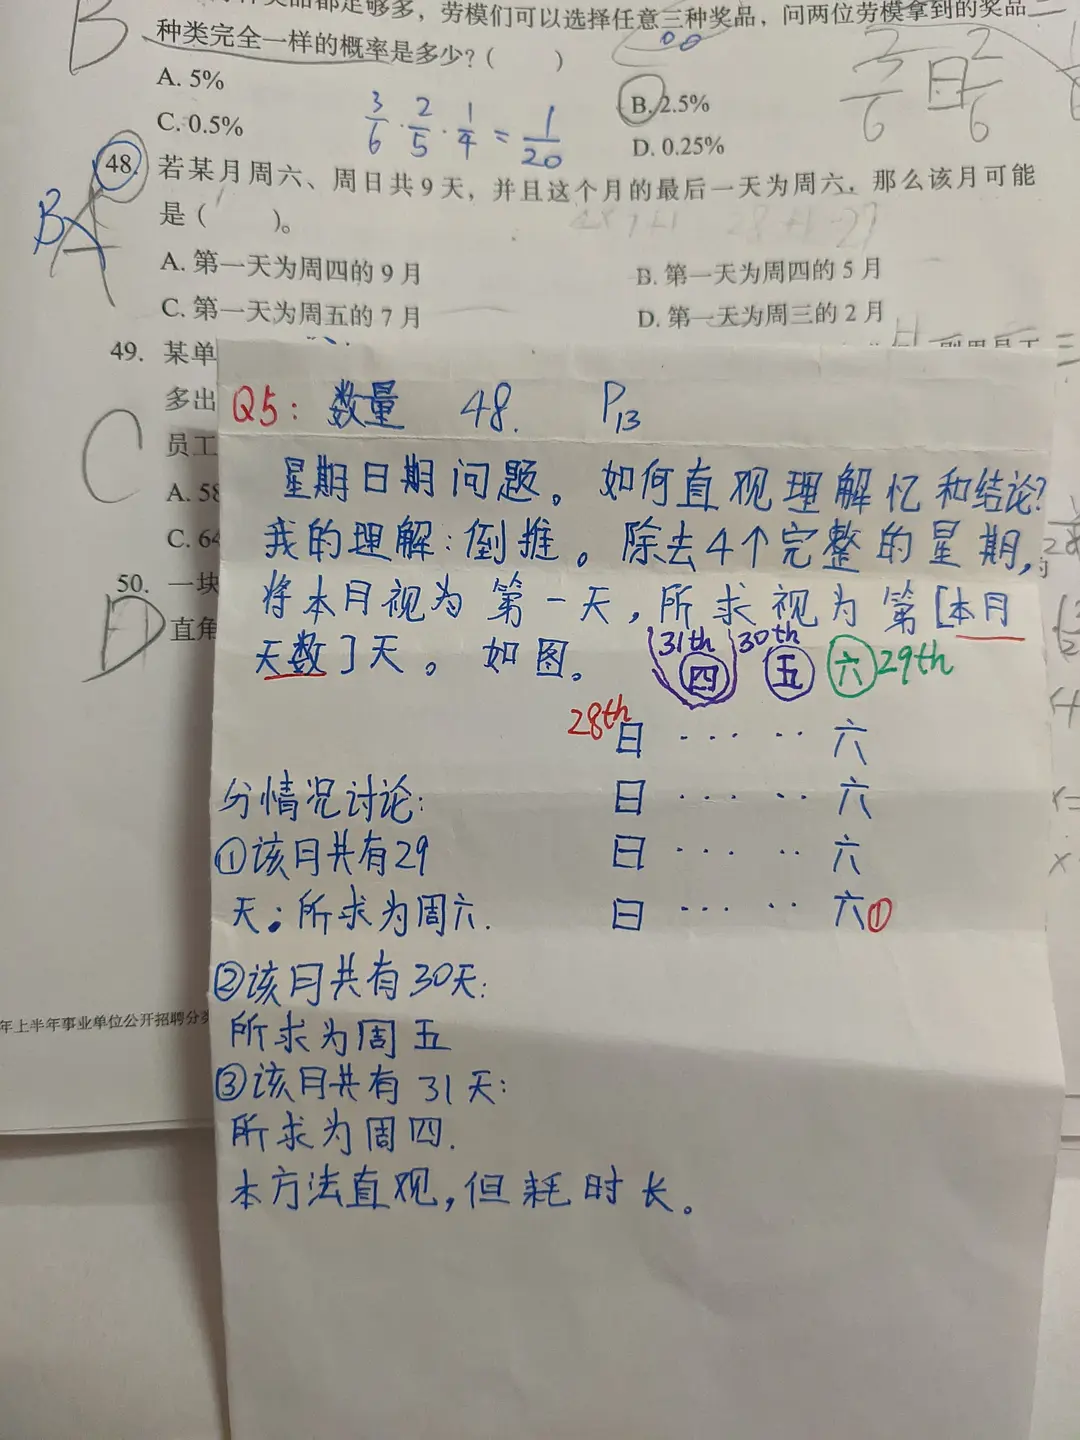 奖品都足够多，劳模们可以选择任意三种奖品，问两位劳模拿到的奖品
种类完全一样的概率是多少？（ ）
B
A. 5%
B. 2.5%
C. 0.5%
D. 0.25%
3/6 · 2/5 · 1/4 = 1/20
3/6 日 2/6
48. 若某月周六、周日共 9 天，并且这个月的最后一天为周六，那么该月可能
是（ ）。
B A
A. 第一天为周四的 9 月
B. 第一天为周四的 5 月
C. 第一天为周五的 7 月
D. 第一天为周三的 2 月
49. 某单
多出
员工
C
A. 58
C. 64
50. 一块
直角
D
年上半年事业单位公开招聘分类
Q5: 数量 48. P13
星期日期问题。如何直观理解忆和结论?
我的理解:倒推。除去4个完整的星期,
将本月视为第一天,所求视为第[本月
天数]天。如图。
31th 30th
四 五 六 29th
28th
日 ····· 六
日 ····· 六
日 ····· 六
日 ····· 六①
分情况讨论:
①该月共有29
天:所求为周六.
②该月共有30天:
所求为周五
③该月共有31天:
所求为周四.
本方法直观,但耗时长。